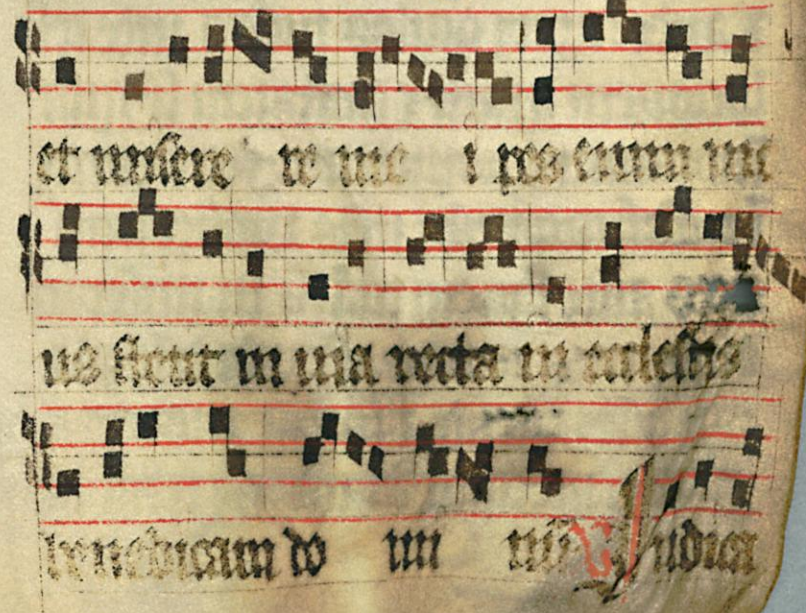 et misere re me i pes enim me
us stetit in uia recta in ecclesiis
benedicam do mi num Iudica